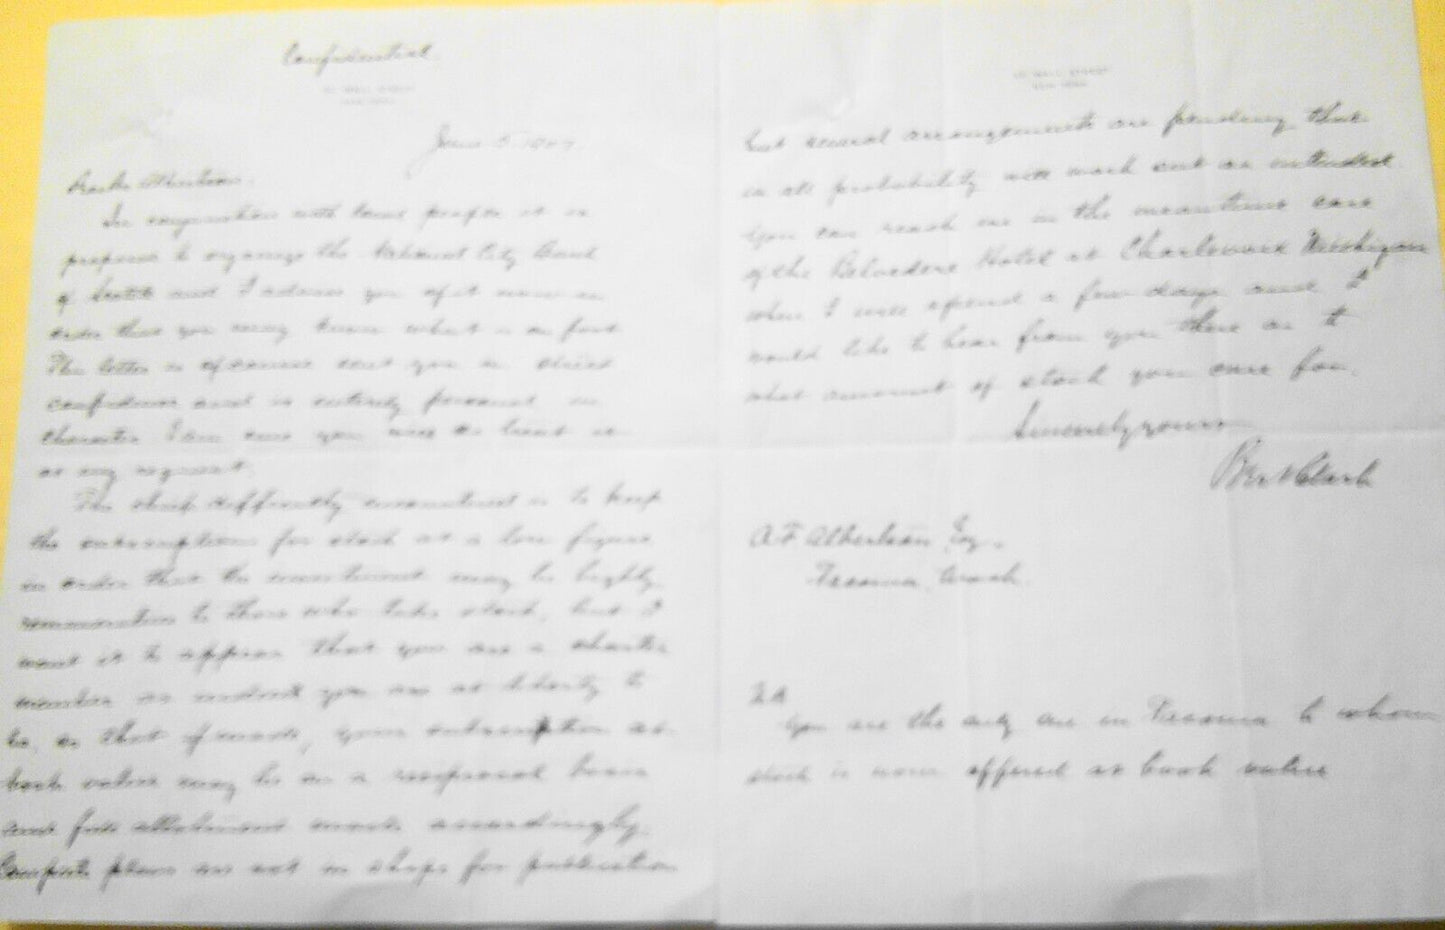 Confidential
WALL STREET
NEW YORK
June 5, 190
Albertson.
In conjunction with local people it is
proposed to organize the National City Bank
of Seattle and I advise you of it now in
order that you may know what is on foot
This letter is of course sent you in strict
confidence and is entirely personal in
character I am sure you will so treat it
at my request.
The chief difficulty encountered is to keep
the subscriptions for stock at a low figure
in order that the investment may be highly
remunerative to those who take stock, but I
want it to appear that you are a charter
member as indeed you are at liberty to
be, so that if made, your subscription at
book value may be on a reciprocal basis
and full allotment made accordingly.
Complete plans are not in shape for publication
WALL STREET
NEW YORK
but several arrangements are pending that
in all probability will work out as intended
You can reach me in the meantime care
of the Belvedere Hotel at Charlevoix Michigan
where I will spend a few days and
would like to hear from you there as to
what amount of stock you care for.
Sincerely yours
Clark
A F Albertson Esq.
Tacoma, Wash.
You are the only one in Tacoma to whom
stock is now offered at book value